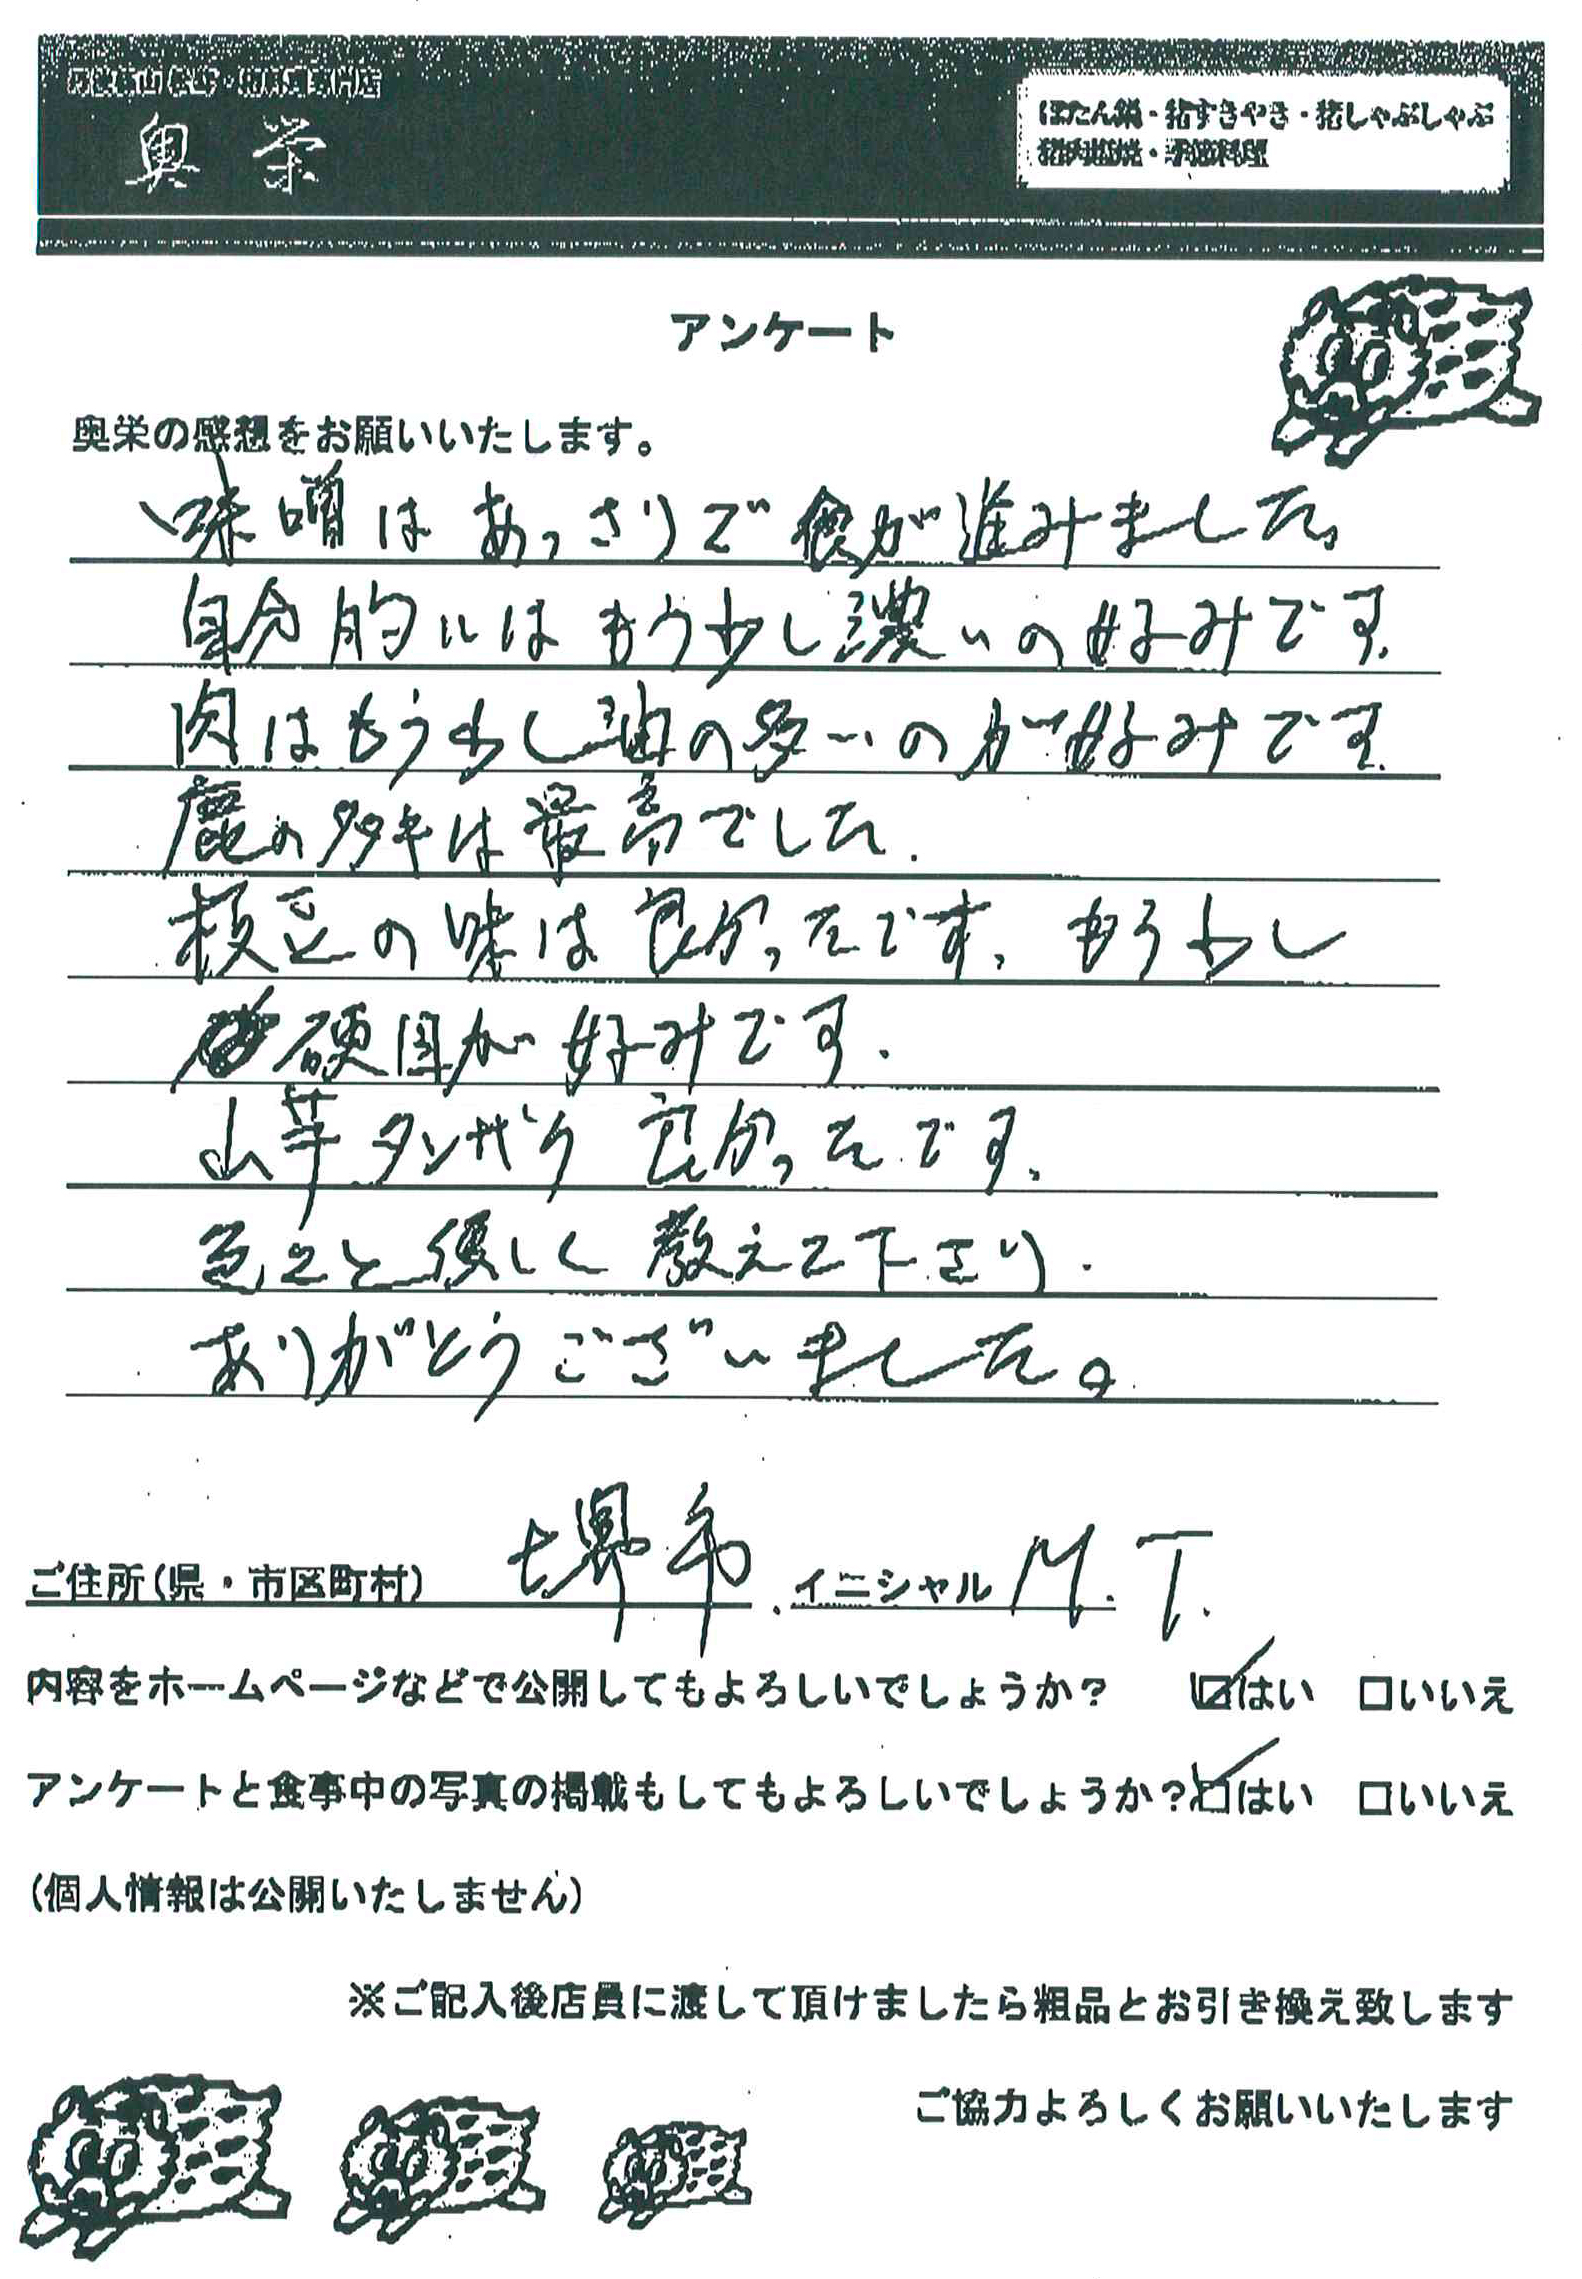 奥栄
ぼたん鍋・猪すきやき・猪しゃぶしゃぶ
猪肉塩焼・季節料理
アンケート
奥栄の感想をお願いいたします。
味噌はあっさりで食が進みました。
自分的にはもう少し濃いの好みです。
肉はもう少し油の多いのが好みです。
鹿のタタキは最高でした.
枝豆の味は良かったです。もう少し
硬目が好みです.
山芋タンザク良かったです.
色々と優しく教えて下さり.
ありがとうございました。
ご住所(県・市区町村) 堺市 イニシャル M.T.
内容をホームページなどで公開してもよろしいでしょうか? ☑はい □いいえ
アンケートと食事中の写真の掲載もしてもよろしいでしょうか?☑はい □いいえ
(個人情報は公開いたしません)
※ご記入後店員に渡して頂けましたら粗品とお引き換え致します
ご協力よろしくお願いいたします